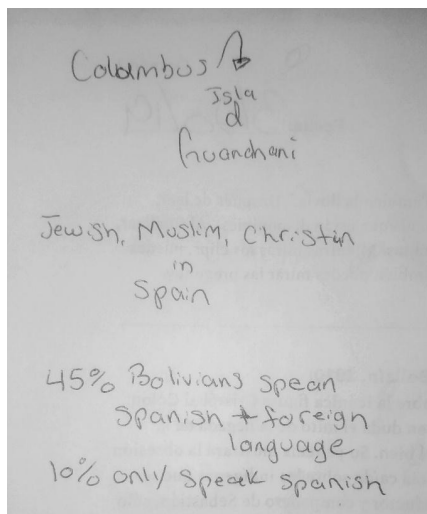 Colombus
Isla
d
Guanahani
Jewish, Muslim, Christian
in
Spain
45% Bolivians spean
Spanish + foreign
language
10% only speak spanish